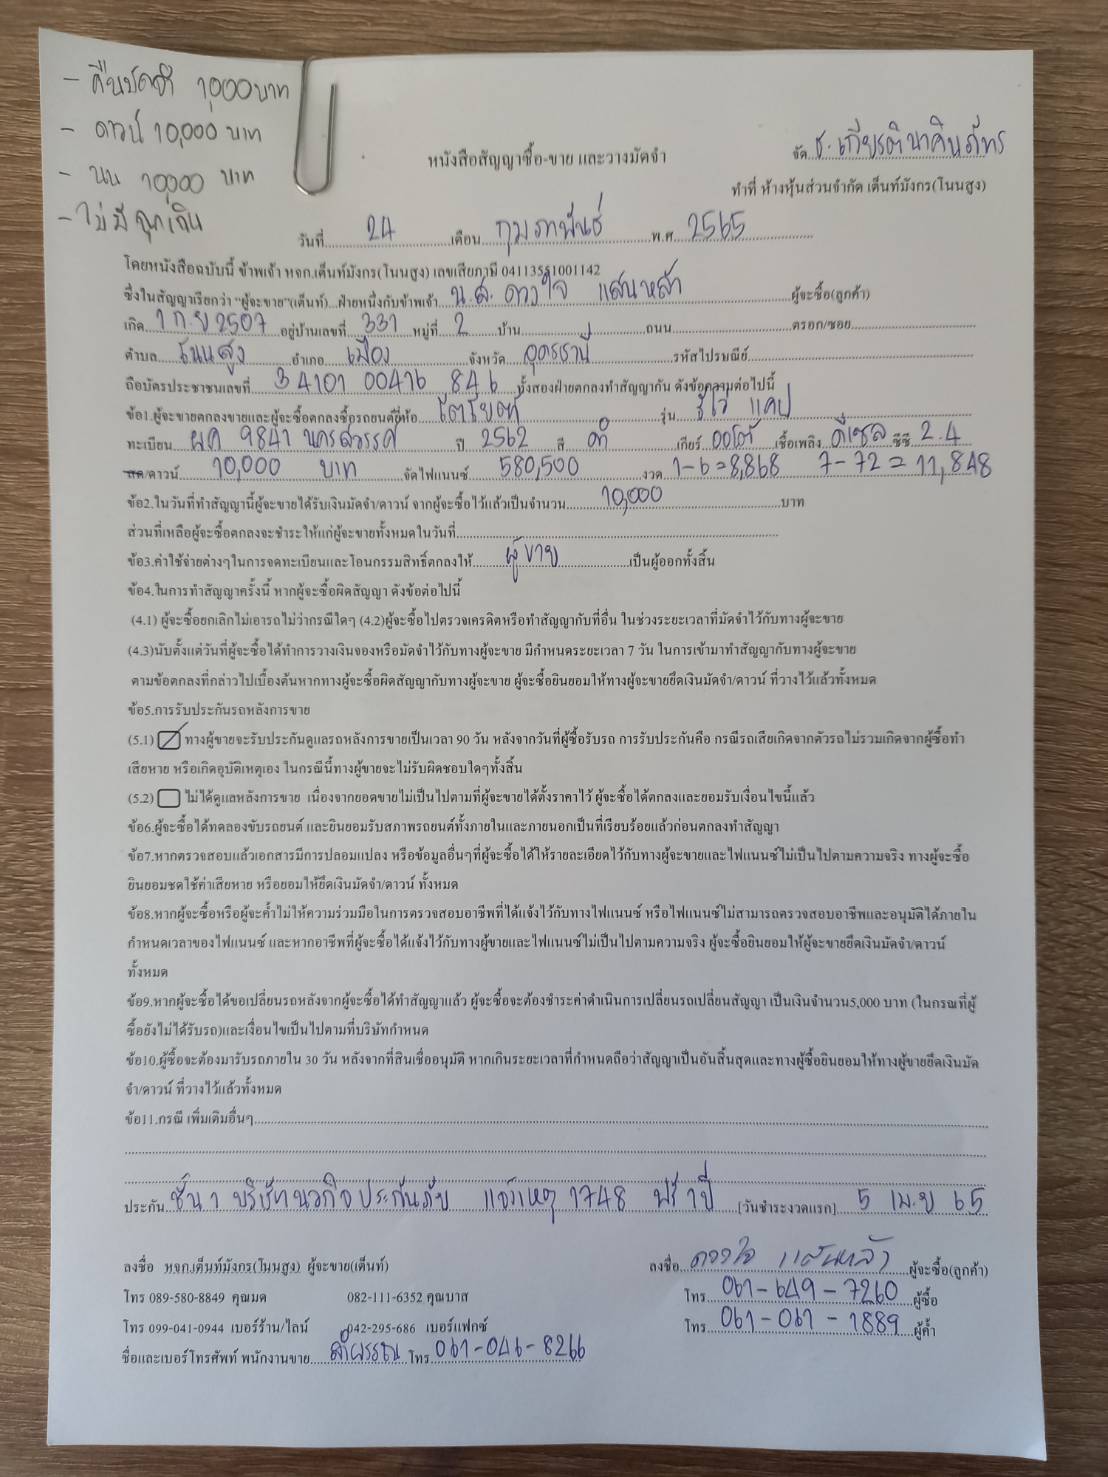 - คืนมัดจำ 1,000 บาท
- ดาวน์ 10,000 บาท
- นน 10,000 บาท
- ไม่มีฉุกเฉิน
จัด ธ.เกียรตินาคินภัทร
หนังสือสัญญาซื้อ-ขาย และวางมัดจำ
ทำที่ ห้างหุ้นส่วนจำกัด เต็นท์มังกร(โนนสูง)
วันที่ 24 เดือน กุมภาพันธ์ พ.ศ. 2565
โดยหนังสือฉบับนี้ ข้าพเจ้า หจก.เต็นท์มังกร(โนนสูง) เลขเสียภาษี 04113551001142
ซึ่งในสัญญาเรียกว่า "ผู้จะขาย"(เต็นท์)...ฝ่ายหนึ่งกับข้าพเจ้า น.ส. ดวงใจ แสนหล้า ผู้จะซื้อ(ลูกค้า)
เกิด 1 ก.ย 2507 อยู่บ้านเลขที่ 331 หมู่ที่ 2 บ้าน ถนน ตรอก/ซอย
ตำบล โนนสูง อำเภอ เมือง จังหวัด อุดรธานี รหัสไปรษณีย์
ถือบัตรประชาชนเลขที่ 3 4101 00476 84 6 ทั้งสองฝ่ายตกลงทำสัญญากัน ดังข้อความต่อไปนี้
ข้อ1.ผู้จะขายตกลงขายและผู้จะซื้อตกลงซื้อรถยนต์ยี่ห้อ โตโยต้า รุ่น รีโว่ แคป
ทะเบียน ผค 9841 นครสวรรค์ ปี 2562 สี ดำ เกียร์ ออโต้ เชื้อเพลิง ดีเซล ซีซี 2.4
สด/ดาวน์ 10,000 บาท จัดไฟแนนซ์ 580,500 งวด 1-6=8,868 7-72=11,848
ข้อ2.ในวันที่ทำสัญญานี้ผู้จะขายได้รับเงินมัดจำ/ดาวน์ จากผู้จะซื้อไว้แล้วเป็นจำนวน 10,000 บาท
ส่วนที่เหลือผู้จะซื้อตกลงจะชำระให้แก่ผู้จะขายทั้งหมดในวันที่
ข้อ3.ค่าใช้จ่ายต่างๆในการจดทะเบียนและโอนกรรมสิทธิ์ตกลงให้ ผู้ขาย เป็นผู้ออกทั้งสิ้น
ข้อ4.ในการทำสัญญาครั้งนี้ หากผู้จะซื้อผิดสัญญา ดังข้อต่อไปนี้
(4.1) ผู้จะซื้อยกเลิกไม่เอารถไม่ว่ากรณีใดๆ (4.2)ผู้จะซื้อไปตรวจเครดิตหรือทำสัญญากับที่อื่น ในช่วงระยะเวลาที่มัดจำไว้กับทางผู้จะขาย
(4.3)นับตั้งแต่วันที่ผู้จะซื้อได้ทำการวางเงินจองหรือมัดจำไว้กับทางผู้จะขาย มีกำหนดระยะเวลา 7 วัน ในการเข้ามาทำสัญญากับทางผู้จะขาย
ตามข้อตกลงที่กล่าวไปเบื้องต้นหากทางผู้จะซื้อผิดสัญญากับทางผู้จะขาย ผู้จะซื้อยินยอมให้ทางผู้จะขายยึดเงินมัดจำ/ดาวน์ ที่วางไว้แล้วทั้งหมด
ข้อ5.การรับประกันรถหลังการขาย
(5.1) ทางผู้ขายจะรับประกันดูแลรถหลังการขายเป็นเวลา 90 วัน หลังจากวันที่ผู้ซื้อรับรถ การรับประกันคือ กรณีรถเสียเกิดจากตัวรถไม่รวมเกิดจากผู้ซื้อทำ
เสียหาย หรือเกิดอุบัติเหตุเอง ในกรณีนี้ทางผู้ขายจะไม่รับผิดชอบใดๆทั้งสิ้น
(5.2) ไม่ได้ดูแลหลังการขาย เนื่องจากยอดขายไม่เป็นไปตามที่ผู้จะขายได้ตั้งราคาไว้ ผู้จะซื้อได้ตกลงและยอมรับเงื่อนไขนี้แล้ว
ข้อ6.ผู้จะซื้อได้ทดลองขับรถยนต์ และยินยอมรับสภาพรถยนต์ทั้งภายในและภายนอกเป็นที่เรียบร้อยแล้วก่อนตกลงทำสัญญา
ข้อ7.หากตรวจสอบแล้วเอกสารมีการปลอมแปลง หรือข้อมูลอื่นๆที่ผู้จะซื้อได้ให้รายละเอียดไว้กับทางผู้จะขายและไฟแนนซ์ไม่เป็นไปตามความจริง ทางผู้จะซื้อ
ยินยอมชดใช้ค่าเสียหาย หรือยอมให้ยึดเงินมัดจำ/ดาวน์ ทั้งหมด
ข้อ8.หากผู้จะซื้อหรือผู้จะค้ำไม่ให้ความร่วมมือในการตรวจสอบอาชีพที่ได้แจ้งไว้กับทางไฟแนนซ์ หรือไฟแนนซ์ไม่สามารถตรวจสอบอาชีพและอนุมัติได้ภายใน
กำหนดเวลาของไฟแนนซ์ และหากอาชีพที่ผู้จะซื้อได้แจ้งไว้กับทางผู้ขายและไฟแนนซ์ไม่เป็นไปตามความจริง ผู้จะซื้อยินยอมให้ผู้จะขายยึดเงินมัดจำ/ดาวน์
ทั้งหมด
ข้อ9.หากผู้จะซื้อได้ขอเปลี่ยนรถหลังจากผู้จะซื้อได้ทำสัญญาแล้ว ผู้จะซื้อจะต้องชำระค่าดำเนินการเปลี่ยนรถเปลี่ยนสัญญา เป็นเงินจำนวน5,000 บาท (ในกรณที่ผู้
ซื้อยังไม่ได้รับรถ)และเงื่อนไขเป็นไปตามที่บริษัทกำหนด
ข้อ10.ผู้ซื้อจะต้องมารับรถภายใน 30 วัน หลังจากที่สินเชื่ออนุมัติ หากเกินระยะเวลาที่กำหนดถือว่าสัญญาเป็นอันสิ้นสุดและทางผู้ซื้อยินยอมให้ทางผู้ขายยึดเงินมัด
จำ/ดาวน์ ที่วางไว้แล้วทั้งหมด
ข้อ11.กรณี เพิ่มเติมอื่นๆ
ประกัน ชั้น 1 บริษัทนวกิจประกันภัย แจ้งเหตุ 1748 ฟรี 1 ปี [วันชำระงวดแรก] 5 เม.ย 65
ลงชื่อ หจก.เต็นท์มังกร(โนนสูง) ผู้จะขาย(เต็นท์) ลงชื่อ ดวงใจ แสนหล้า ผู้จะซื้อ(ลูกค้า)
โทร 089-580-8849 คุณมด 082-111-6352 คุณบาส โทร 061-649-7260 ผู้ซื้อ
โทร 099-041-0944 เบอร์ร้าน/ไลน์ 042-295-686 เบอร์แฟกซ์ โทร 061-061-1889 ผู้ค้ำ
ชื่อและเบอร์โทรศัพท์ พนักงานขาย โทร 061-046-8266